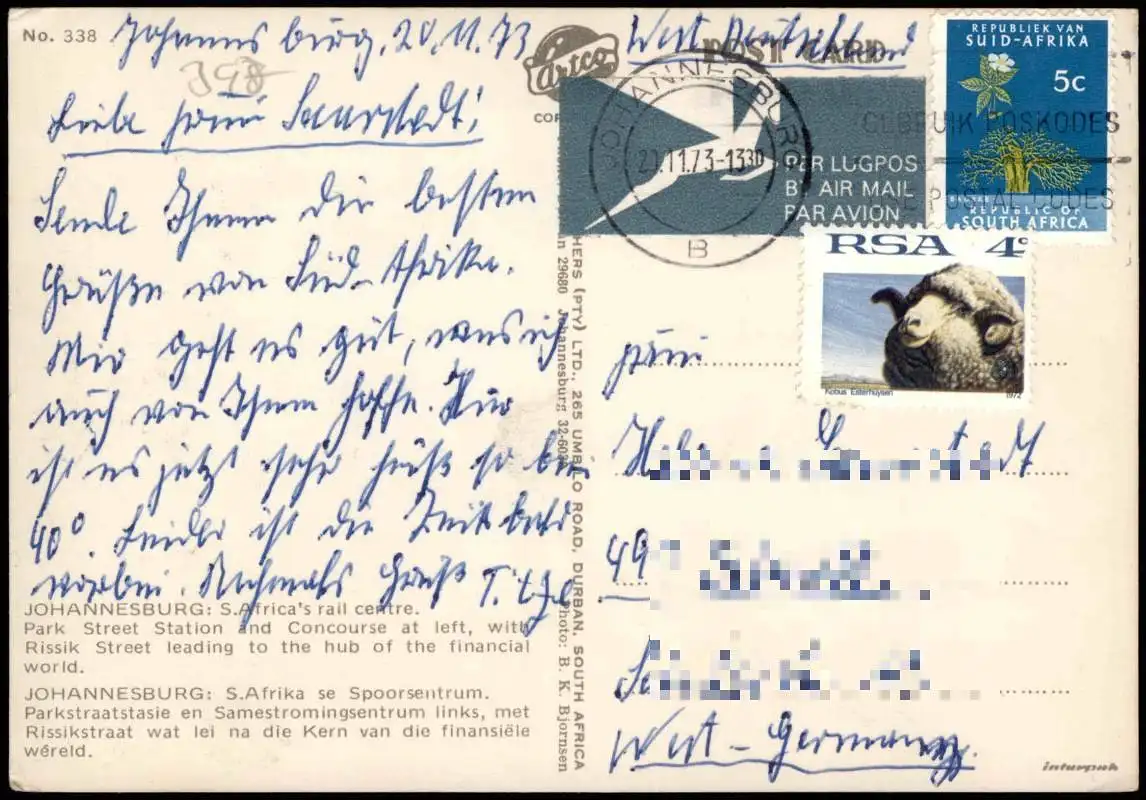 No. 338
Johannesburg, 20.11.73
348
Liebe Frau
Sende Ihnen die besten
Grüße von Süd-Afrika.
Mir geht es gut, was ich
auch von Ihnen hoffe. Nur
ist es jetzt sehr heiß so bei
40°. Leider ist die Zeit bald
vorbei. Nochmals Gruß
JOHANNESBURG: S.Africa's rail centre.
Park Street Station and Concourse at left, with
Rissik Street leading to the hub of the financial
world.
JOHANNESBURG: S.Afrika se Spoorsentrum.
Parkstraatstasie en Samestromingsentrum links, met
Rissikstraat wat lei na die Kern van die finansiële
wéreld.
Artco
COP
HERS (PTY) LTD., 265 UMBILO ROAD, DURBAN, SOUTH AFRICA
29680 Johannesburg Photo: B. K. Bjornsen
West Deutschland
POST CARD
JOHANNESBURG
20.11.73-1330
B
PER LUGPOS
BY AIR MAIL
PAR AVION
REPUBLIEK VAN
SUID-AFRIKA
5c
GEBRUIK POSKODES
USE POSTAL CODES
REPUBLIC OF
SOUTH AFRICA
RSA 4c
Kobus Esterhuysen 1972
Frau
49
West-Germany.
interpub